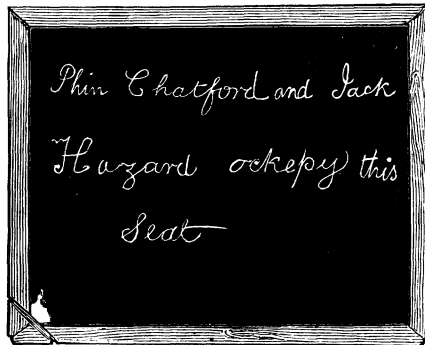 Phin Chatford and Jack
Hazard ockepy this
Seat